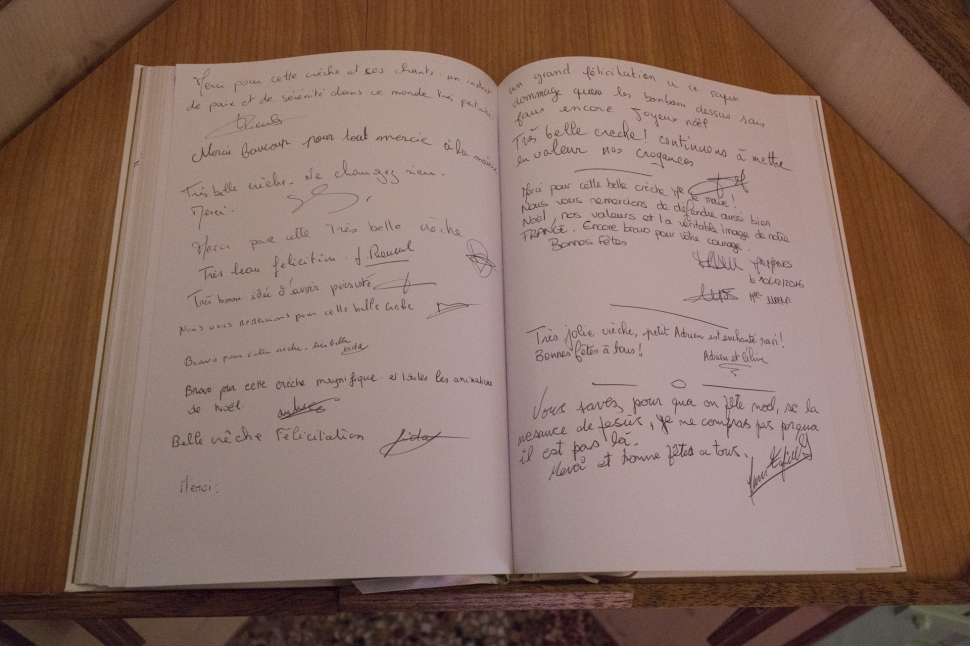 Merci pour cette crèche et ses chants. un instant
de paix et de sérénité dans ce monde très
Merci Baucoup pour tout mercie à la mairie
Très belle crèche. Ne changez rien.
Merci.
Merci pour cette Très belle crèche
Très beau félicitation.
Très bonne idée d'avoir
Nous vous remercions pour cette belle crèche
Bravo pour cette crèche. très belle
Bravo pour cette crèche magnifique et toutes les animations
de Noël.
Belle crêche Félicitation
Merci:
un grand félicitation a ce sapin
dommage que les bonbons dessus sois
faux encore Joyeux noël
Très belle crèche! continuons à mettre
en valeur nos croyances
Merci pour cette belle crèche Mr le maire!
Nous vous remercions de défendre aussi bien
Noël, nos valeurs et la véritable image de notre
FRANCE. Encore bravo pour votre courage.
Bonnes fêtes
Très jolie crèche, petit Adrien est enchanté ravi!
Bonnes fêtes à tous!
Adrien et
Vous savez pour qua on fête noel, se la
nesance de Jesus, je ne compras pas porqua
il est pas là.
Merci et bonne fêtes a tous.